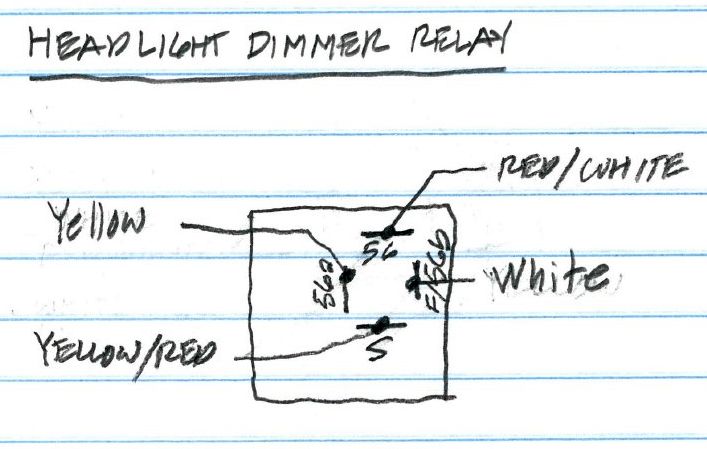 HEADLIGHT DIMMER RELAY
RED/WHITE
Yellow
56
56a
F/56b
White
YELLOW/RED
S